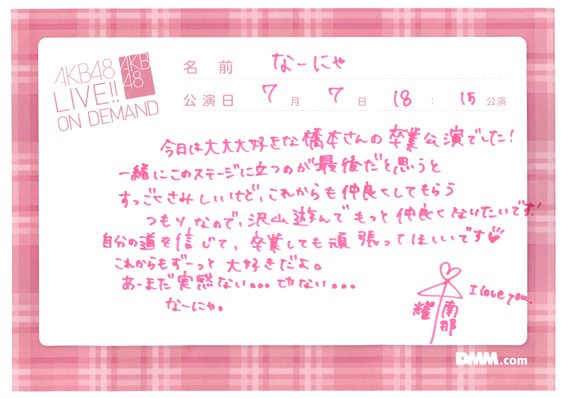 AKB48
LIVE!!
ON DEMAND
AKB
48
名前 なーにゃ
公演日 7月7日 18:15公演
今日は大大大好きな橋本さんの卒業公演でした!
一緒にこのステージに立つのが最後だと思うと
すっごくさみしいけど、これからも仲良くしてもらう
つもりなので、沢山遊んでもっと仲良くなりたいです!
自分の道を信じて、卒業しても頑張ってほしいです♡
これからもずーっと大好きだよ。
あーまだ実感ない。。。でない...
なーにゃ。
I love you.
南
那
耀
DMM.com